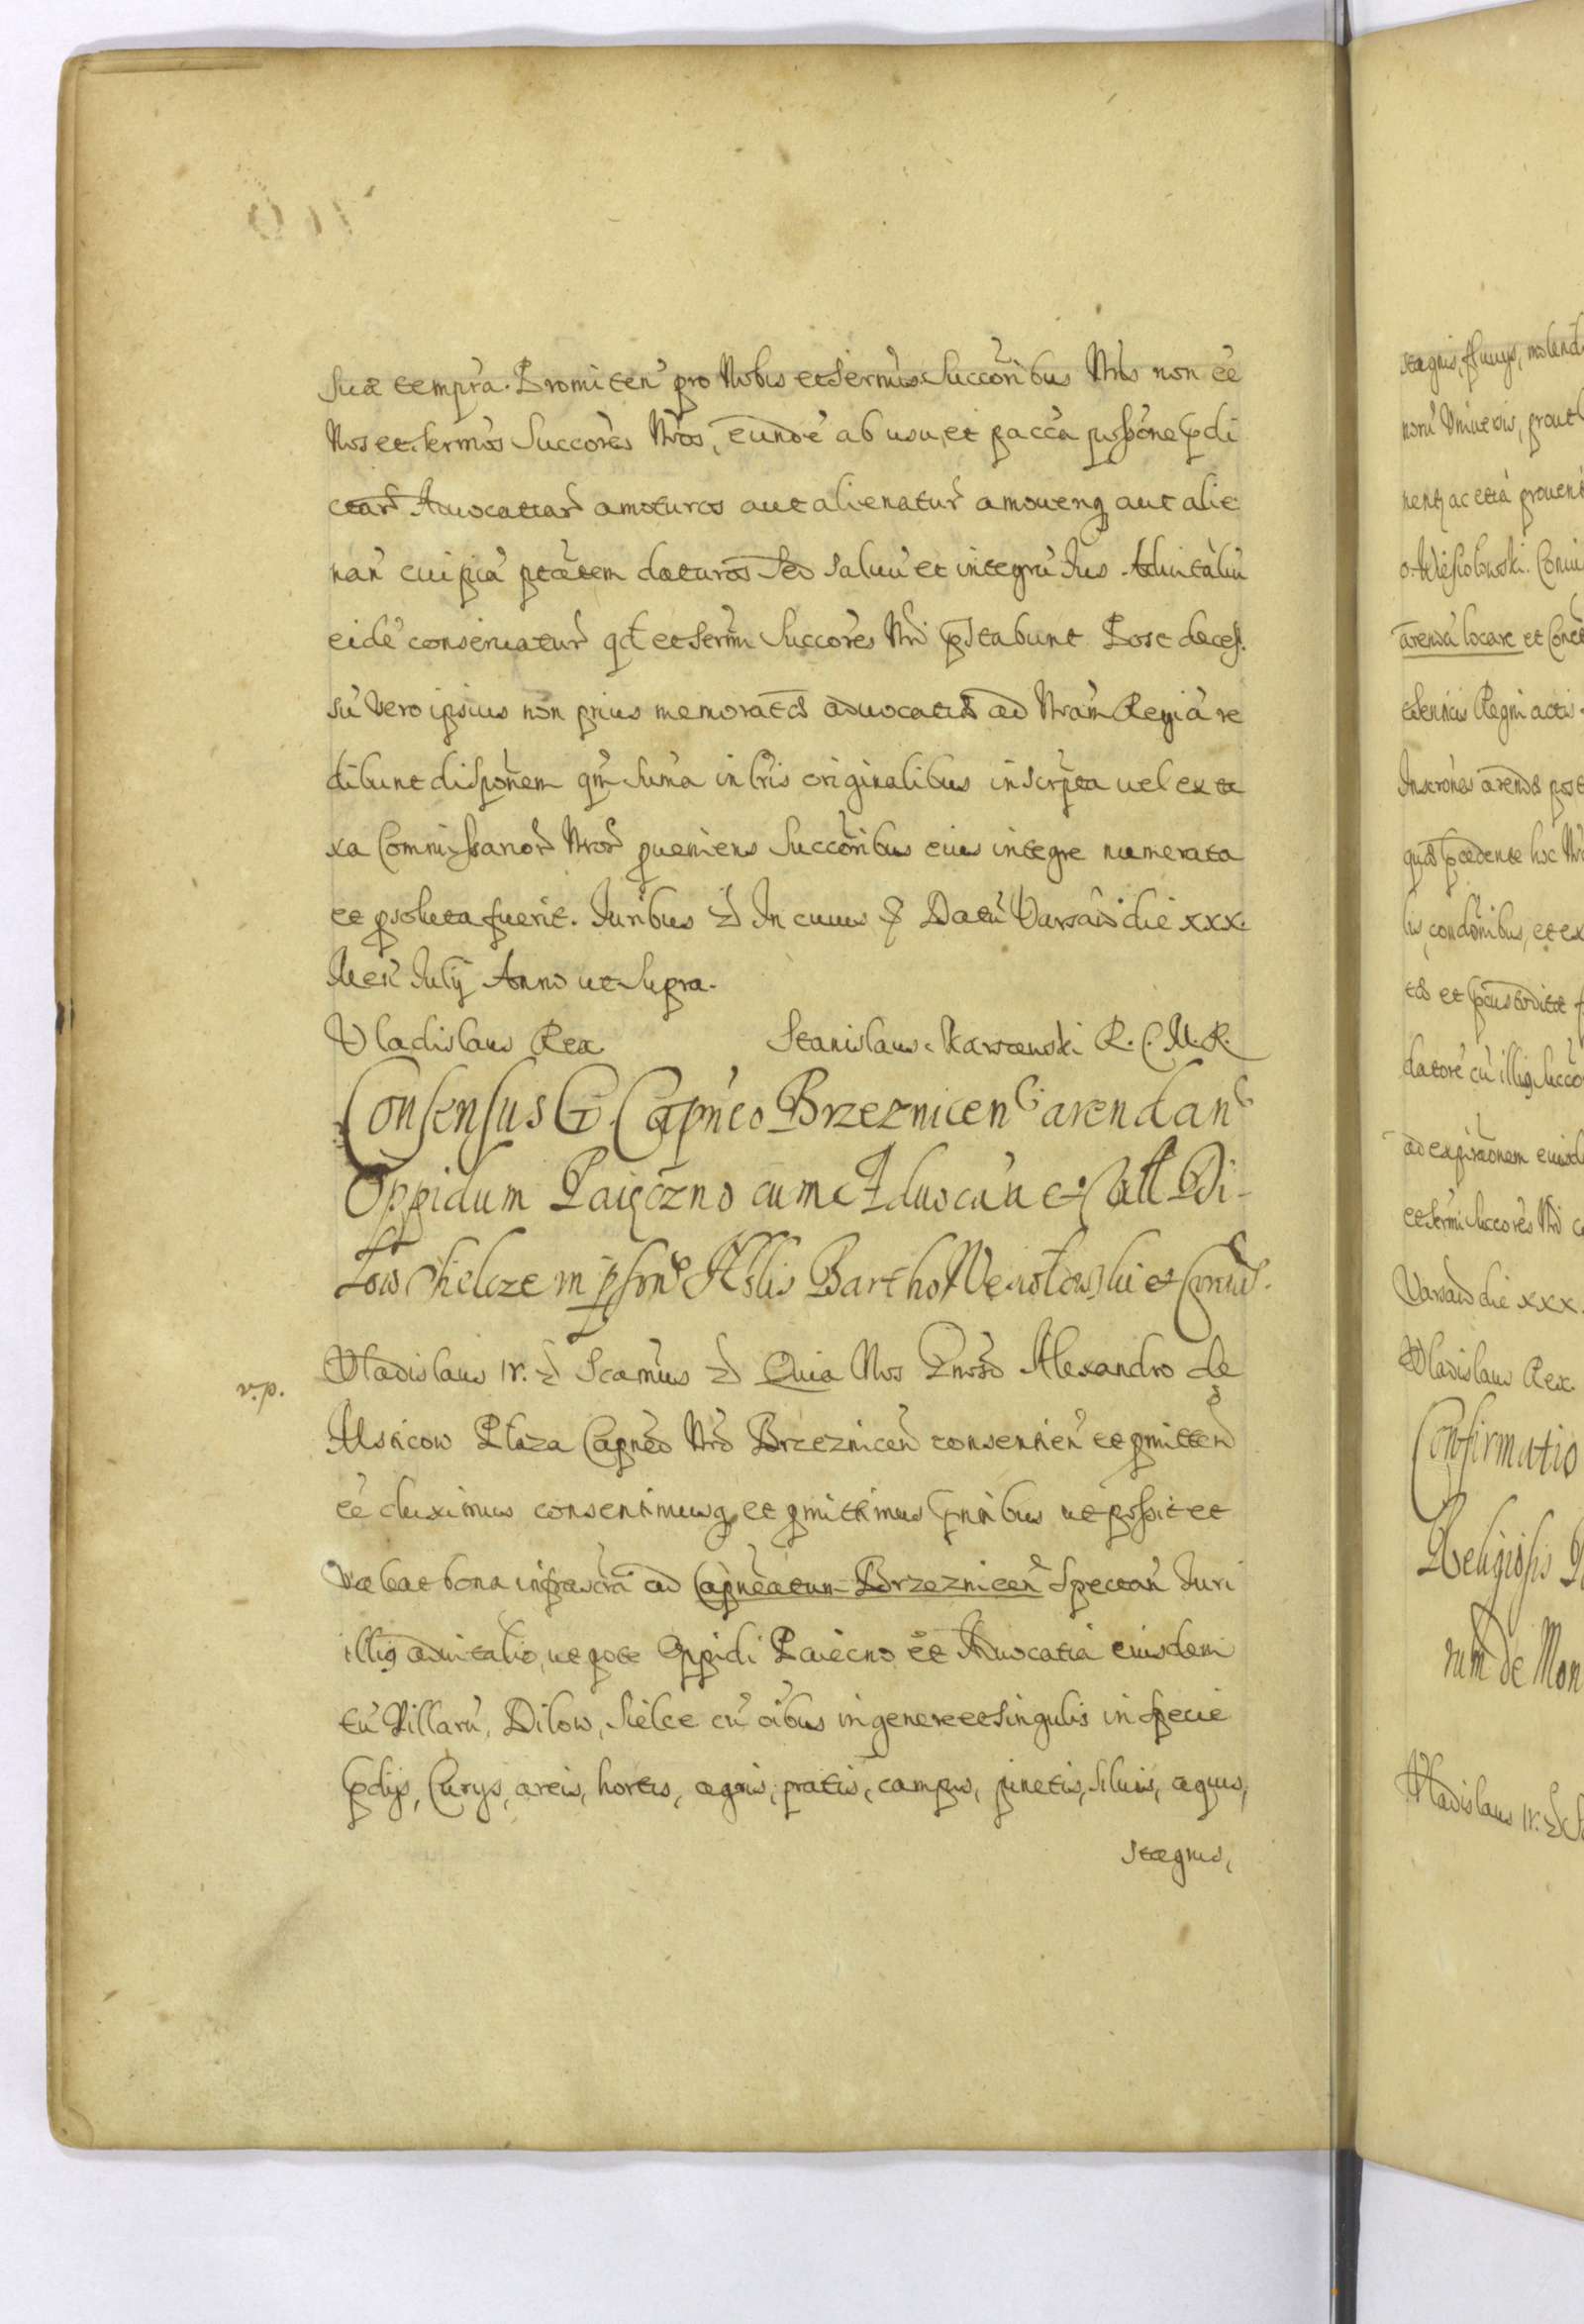 suæ tempra. Promitten pro Nobis et Sermis Succoribus Nris non ee
Nos et Sermos Succores Nros, eunde ab usu, et pacca possone pdi
ctar Aduocatiar amoturos aut alienatur amouenq aut alie
nan cuipia ptatem daturos Sed saluu et integru Ius Aduitaliu
eide conseruatur qd et Sermi Succores Nri pstabunt. Post deces
su vero ipsius non prius memoratæ aduocatiæ ad Nram Regia re
dibunt disponem qm suma in lris originalibus inscripta uel ex ta
xa Commissarior Nror pueniens Succoribus eius integre numerata
et psoluta fuerit. Iuribus In cuius Datu Varsaviæ die xxx.
Men Iulij Anno ut supra.
Vladislaus Rex Stanislaus Naroszewski R. C. M. R.
Consensus G. Capneo Brzeznicen arendan
Oppidum Paięczno cum Aduocatia et Vill Di-
low Sielcze in psona Nolis Barthol et Coniug.
v. p.
Vladislaus IV. Scamus Quia Nos Gnoso Alexandro de
Msticow Plaza Capneo Nro Brzeznicen consentien et pmitten
ee duximus consentimusq et pmittimus pntibus ut possit et
valeat bona infrascra ad Capneatum Brzeznicen spectan Iuri
illiq aduitalio, utpote Oppidi Paiecno et Aduocatia eiusdem
tu Villaru, Dilow, Sielce cu oibus in genere et singulis in specie
pdijs, Curijs, areis, hortis, agris, pratis, campis, pinetis, siluis, aquis,
stagnis,
stagnis, fluuijs, molend
noru Vniuersis, prout
nentq ac etia prouent
arenda locare et Conce
et seruicis Regni actis
Inscrones arendæ post
quas pcedente hoc Nro
lis, condonibus, et ex
datore cu illiq Succo
ad expiraonem eiusd
et Sermi Succores Nri
Varsaviæ die xxx.
Vladislaus Rex
Confirmatio
Religiosis
rum de Mon
Vladislaus IV.